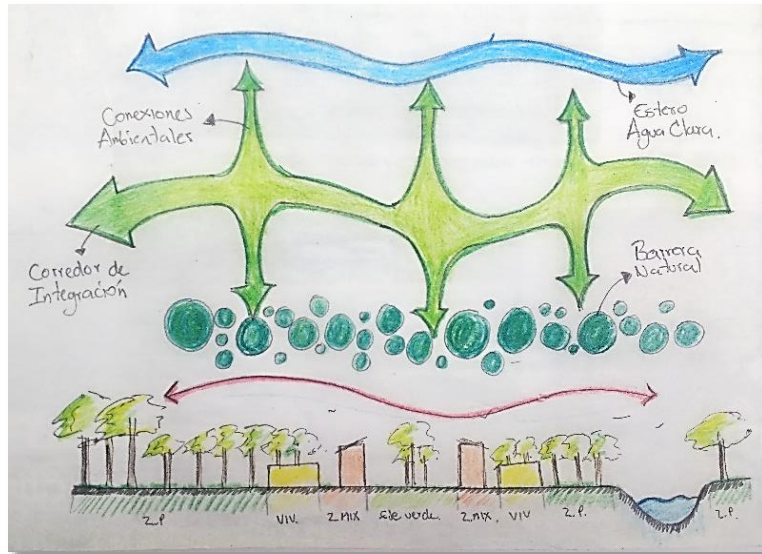 Conexiones
Ambientales
Estero
Agua Clara.
Corredor de
Integración
Barrera
Natural
Z.P VIV. Z.MIX Eje verde. Z.MIX. VIV Z.P. Z.P.